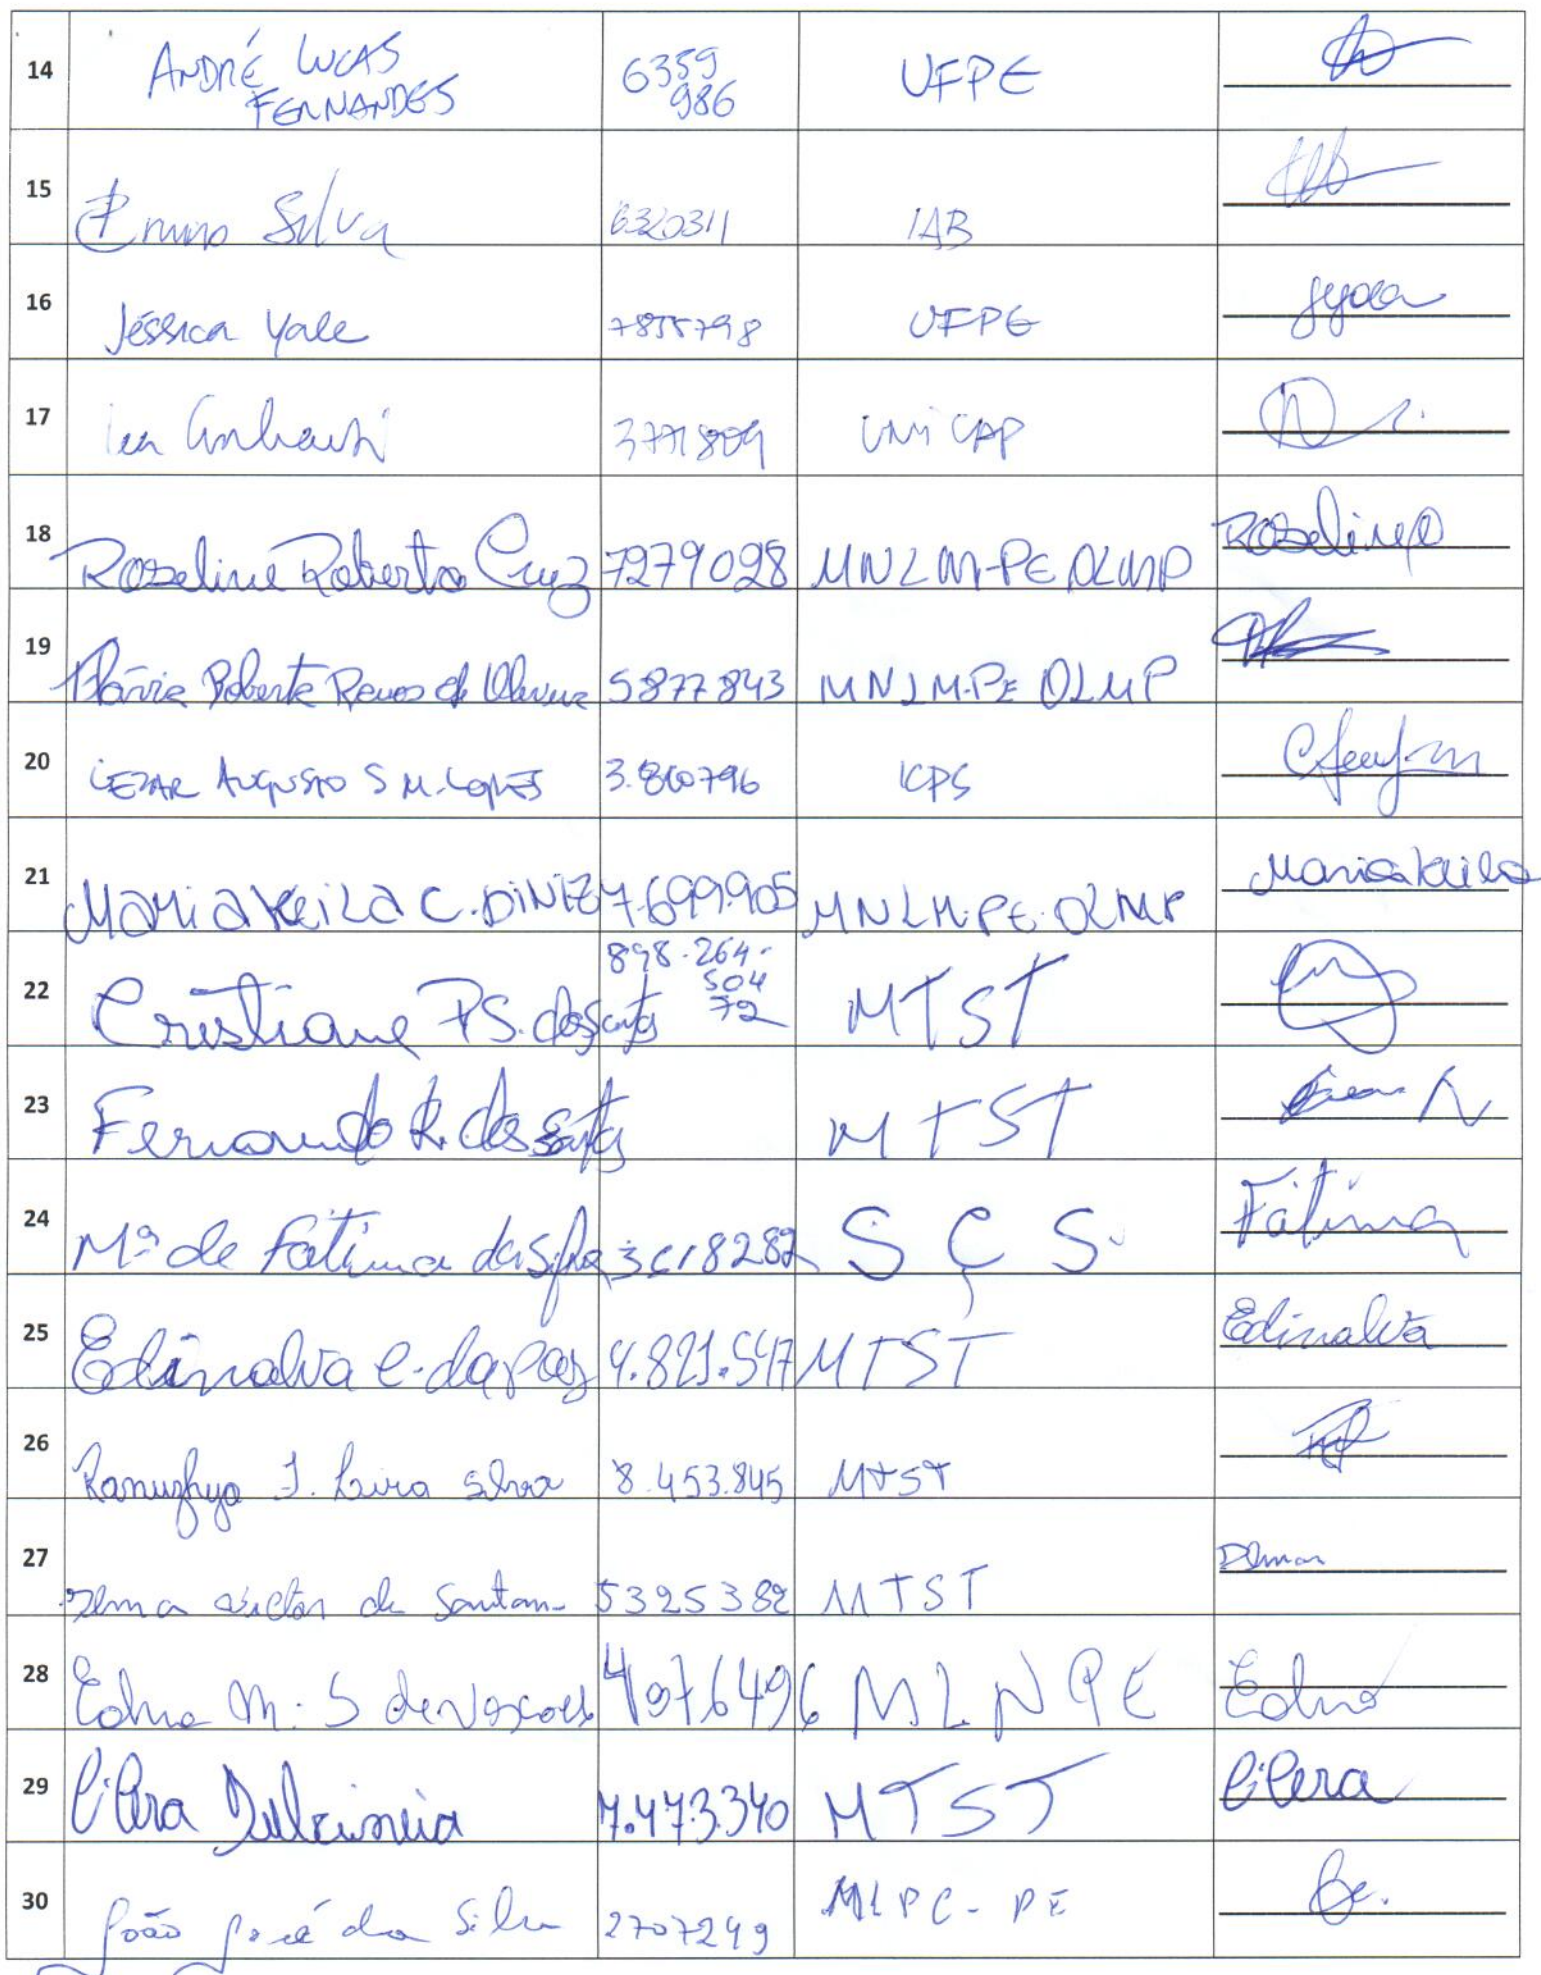 14 ANDRÉ LUCAS FERNANDES 6359 986 UFPE
15 Bruno Silva 6320311 IAB
16 Jéssica Yale 7855798 UFPE
17 3771809 UNICAP
18 Roseline Roberta Cruz 7279028 MNLM-PE OLMP Roseline
19 Flávia Roberta de Oliveira 5877843 MNLM-PE OLMP
20 CEZAR AUGUSTO S M. LOPES 3.860796
21 MARIA KEILA C. DINIZ 7.699.905 MNLM-PE-OLMP Maria Keila
22 Cristiane P.S. dos Santos 898-264-504 72 MTST
23 Fernando R. dos Santos MTST
24 Mª de Fátima da Silva 3618282 S Ç S. Fátima
25 Edinalva C. da Paz 4.821.547 MTST Edinalva
26 J. Lira Silva 8.453.845 MTST
27 de Santan- 5325382 MTST
28 Edna M. S de Vasconcelos 4976496 MLNPE Edna
29 Cilera Dulcineia 7.473.340 MTST Cilera
30 João José da Silva 2707249 MLPC-PE